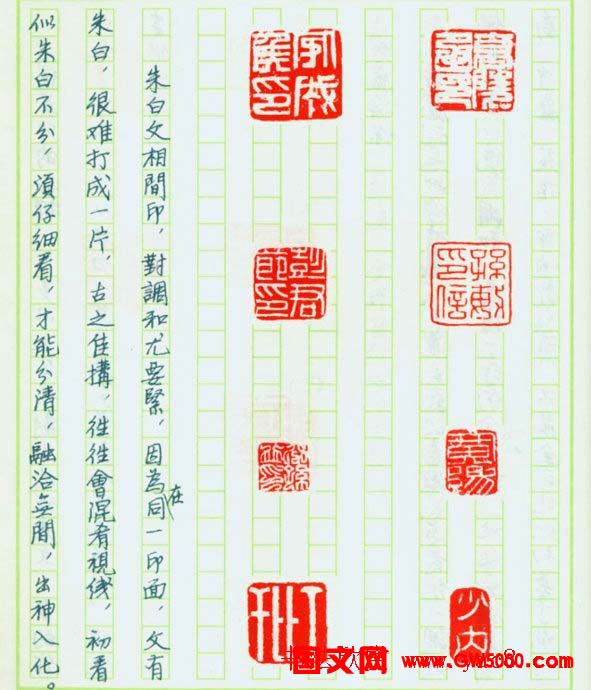 少内
朱白文相間印，對調和尤要緊，因為在同一印面，文有
朱白，很难打成一片，古之佳搆，徃徃會混肴視綫，初看
似朱白不分，須仔细看，才能分清，融洽無間，出神入化。
国文网 www.GW5000.com